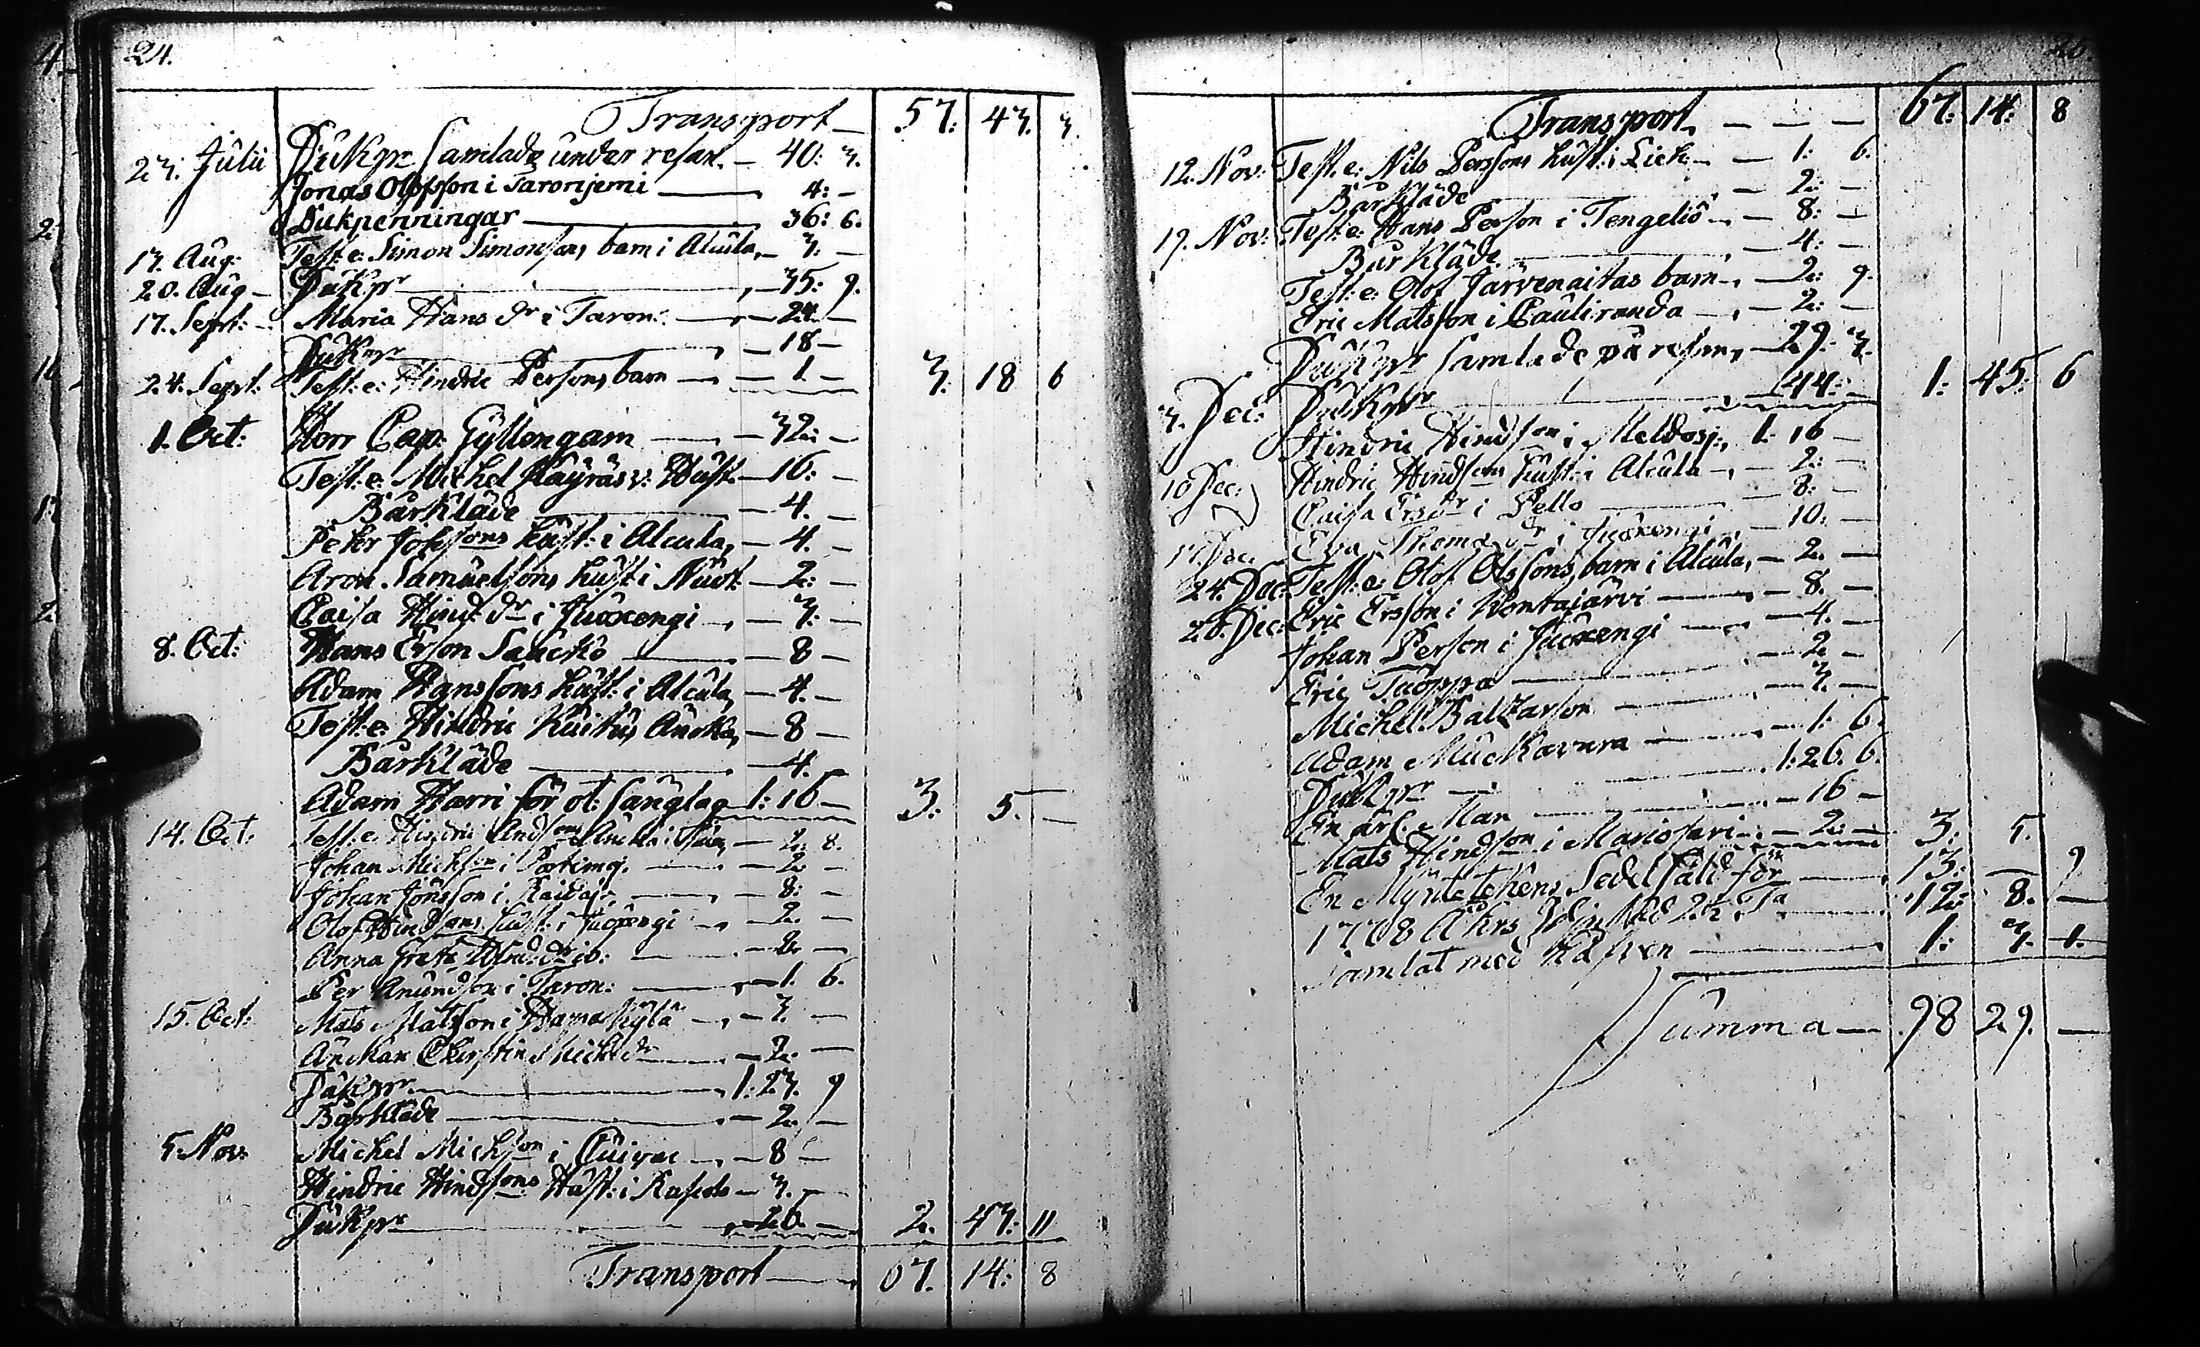 24.
Transport — 57: 43. 3.
23. Julii Dukpr samlade under resan. — 40: 3.
Jonas Olofsson i Taronjemi — 4: —
Dukpenningar — 36: 6.
13. Aug: Test: e: Simon Simonsons barn i Alcula, — 3: —
20. Aug — Dukpr — 35: 9.
17. Sept: Maria Hans dr i Taron: — 24 —
Dukpr — 18 —
24. Sept: Test: e: Hindric Persons barn — 1 — 3: 18 6
1. Oct: Herr Cap: Gyllengam — 32: —
Test: e: Michel Käyräsv: Hust. — 16: —
Bårkläde — 4. —
Petter Johsons hust: i Alcula, — 4. —
Aron Samuelsons hust: i — 2: —
Caisa Hind: dr i Juoxengi — 3: —
8. Oct: Hans Erson Saucko — 8 —
Adam Hanssons hust: i Alcula — 4. —
Test: e: Hindric Änka, — 8 —
Bårkläde — 4. —
Adam Harri för ol: sånglag 1: 16 — 3: 5. —
14. Oct: Test: e: Hindric Andsons Ancka i — 2: 8.
Johan Michson i Portimoj. — 2 —
Johan Jönsson i Raidaj: — 8: —
Olof Hindsons hust: i Juoxengi — 2. —
Anna Greta Hind: dr ib: — 2. —
Per Anundson i Taron: — 1. 6.
15. Oct: Mats Matsson i Kylä — 3. —
Änckan Cherstin Michdr — 2. —
Dukpr — 1: 23. 9
Bårkläde — 2. —
5. Nov: Michel Michson i — 8 —
Hindric Hindsons Hust: i — 3. —
Dukpr — 26. — 2. 43: 11
Transport — 67. 14: 8
25.
Transport — — — 67: 14: 8
12. Nov: Test: e: Nils Perssons hust: i — 1: 6.
Bårkläde — 2: —
19. Nov: Test: e: Hans Person i Tengeliö — 8: —
Bårkläde — 4: —
Test: e: Olof Järvenaitas barn — 2: 9.
Eric Matsson i Pauliranda — 2: —
Dukpr samlade på resan, — 29: 3.
3. Dec: Dukpr — 44: — 1: 45: 6
Hindric Hindson i Meldosj: 1: 16 —
10 Dec: Hindric Hindsons hust: i Alcula — 2: —
Caisa Ersdr i Pello — 8: —
17. Dec. Eva Thomæ dr i Juoxengi — 10: —
24. Dec: Test: e: Olof Olssons barn i Alcula, — 2. —
26. Dec: Eric Ersson i Wentajärvi — 8. —
Johan Person i Juoxengi — 4. —
Eric Tuoppa — 2 —
Michel Baltzarson — 3. —
Adam Muckavara — 1: 6.
Dukpr — 1: 26. 6.
En ärl. Man — 16 —
Mats Hindson i Mariosari — 2: — 3: 5.
En Myntetekens Sedel såld för — 13: — 9
1768 Åhrs — 12: 8. —
Samlat med Håfven — 1: 3. 1.
Summa — 98 29. —